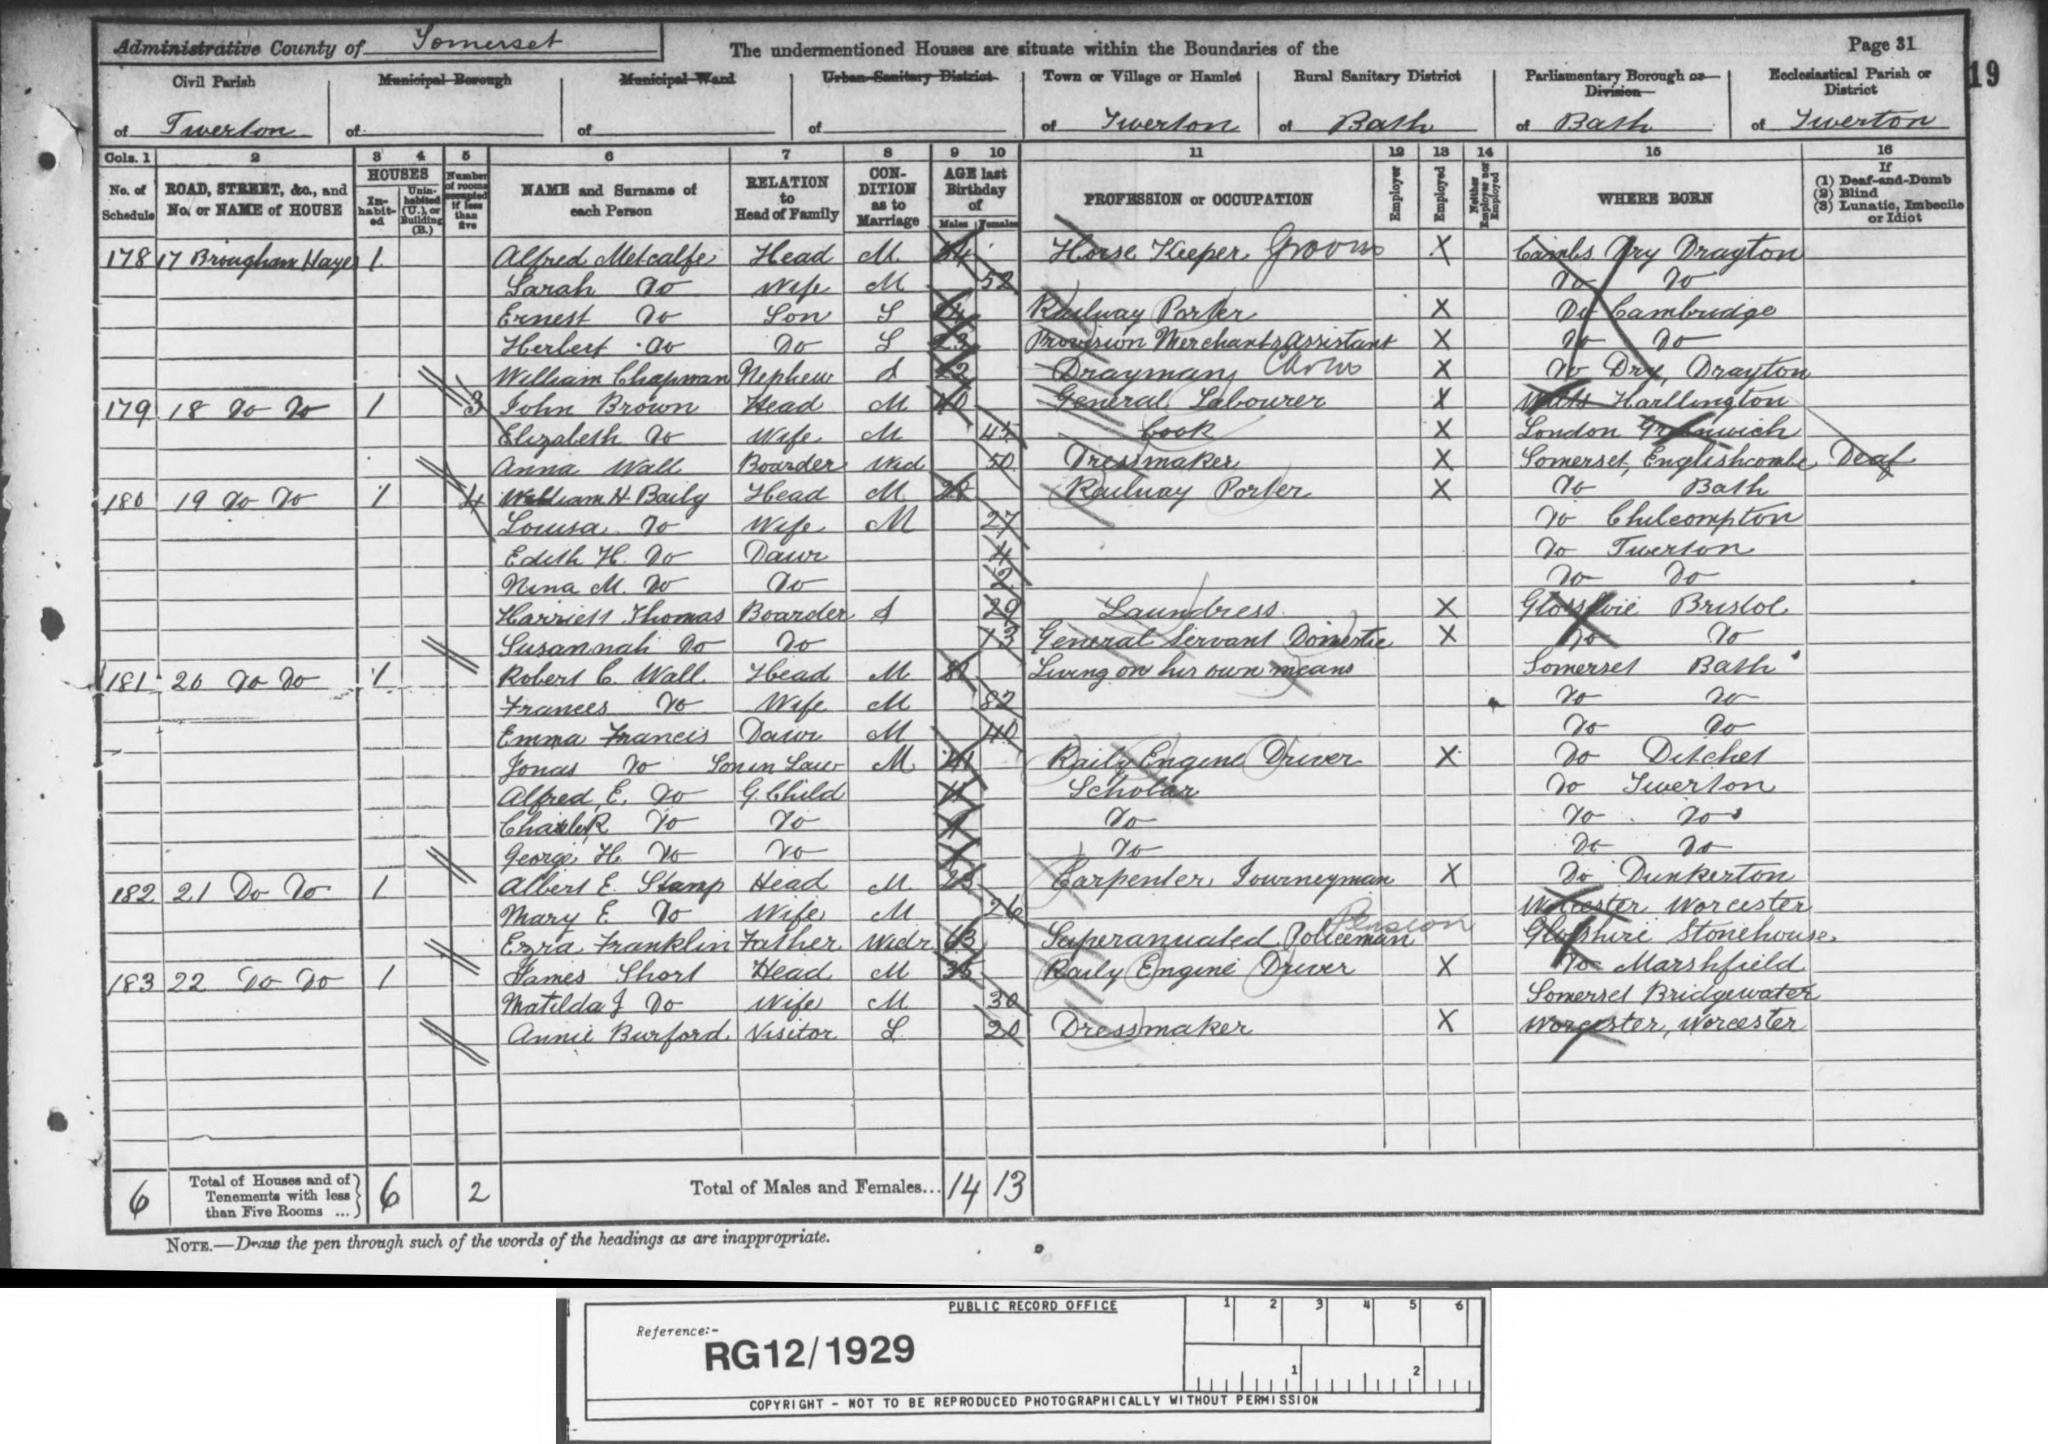 Administrative County of Somerset The undermentioned Houses are situate within the Boundaries of the Page 31
19
Civil Parish Municipal Borough Municipal Ward Urban Sanitary District Town or Village or Hamlet Rural Sanitary District Parliamentary Borough or Division Ecclesiastical Parish or District
of Twerton of of of of Twerton of Bath of Bath of Twerton
Cols. 1 2 3 4 5 6 7 8 9 10 11 12 13 14 15 16
No. of Schedule ROAD, STREET, &c., and No. or NAME of HOUSE HOUSES Inhabited Uninhabited (U.), or Building (B.) Number of rooms occupied if less than five NAME and Surname of each Person RELATION to Head of Family CONDITION as to Marriage AGE last Birthday of Males Females PROFESSION or OCCUPATION Employer Employed Neither Employer nor Employed WHERE BORN If (1) Deaf-and-Dumb (2) Blind (3) Lunatic, Imbecile or Idiot
178 17 Brougham Hayes 1 Alfred Metcalfe Head M 54 Horse Keeper Groom X Cambs Dry Drayton
Sarah Do Wife M 52 Do Do
Ernest Do Son S Railway Porter X Do Cambridge
Herbert Do Do S 23 Provision Merchants Assistant X Do Do
William Chapman Nephew S 22 Drayman X Do Dry Drayton
179 18 Do Do 1 3 John Brown Head M 40 General Labourer X Wilts Harllington
Elizabeth Do Wife M 45 Cook X London Greenwich
Anna Wall Boarder Wid 50 Dressmaker X Somerset, Englishcombe Deaf
180 19 Do Do 1 4 William H Baily Head M Railway Porter X Do Bath
Louisa Do Wife M 27 Do Chilcompton
Edith H. Do Daur 4 Do Twerton
Nina M. Do Do 2 Do Do
Harriett Thomas Boarder S 29 Laundress X Glosshire Bristol
Susannah Do Do 13 General Servant Domestic X Do Do
181 20 Do Do 1 Robert C. Wall Head M 81 Living on his own means Somerset Bath
Frances Do Wife M 82 Do Do
Emma Francis Daur M 40 Do Do
Jonas Do Son in Law M 41 Raily Engine Driver X Do Ditchet
Alfred E. Do G. Child 11 Scholar Do Twerton
Charles R Do Do Do Do Do
George H. Do Do Do Do Do
182 21 Do Do 1 Albert E. Stamp Head M 23 Carpenter, Journeyman X Do Dunkerton
Mary E Do Wife M 26 Worcester Worcester
Ezra Franklin Father Widr 63 Superanuated Policeman Pension Glosshire Stonehouse
183 22 Do Do 1 James Short Head M 36 Raily Engine Driver X Do Marshfield
Matilda J Do Wife M 30 Somerset Bridgewater
Annie Burford Visitor S 20 Dressmaker X Worcester, Worcester
6 Total of Houses and of Tenements with less than Five Rooms ... 6 2 Total of Males and Females... 14 13
NOTE.—Draw the pen through such of the words of the headings as are inappropriate.
PUBLIC RECORD OFFICE 1 2 3 4 5 6
Reference:-
RG12/1929
1 2
COPYRIGHT - NOT TO BE REPRODUCED PHOTOGRAPHICALLY WITHOUT PERMISSION